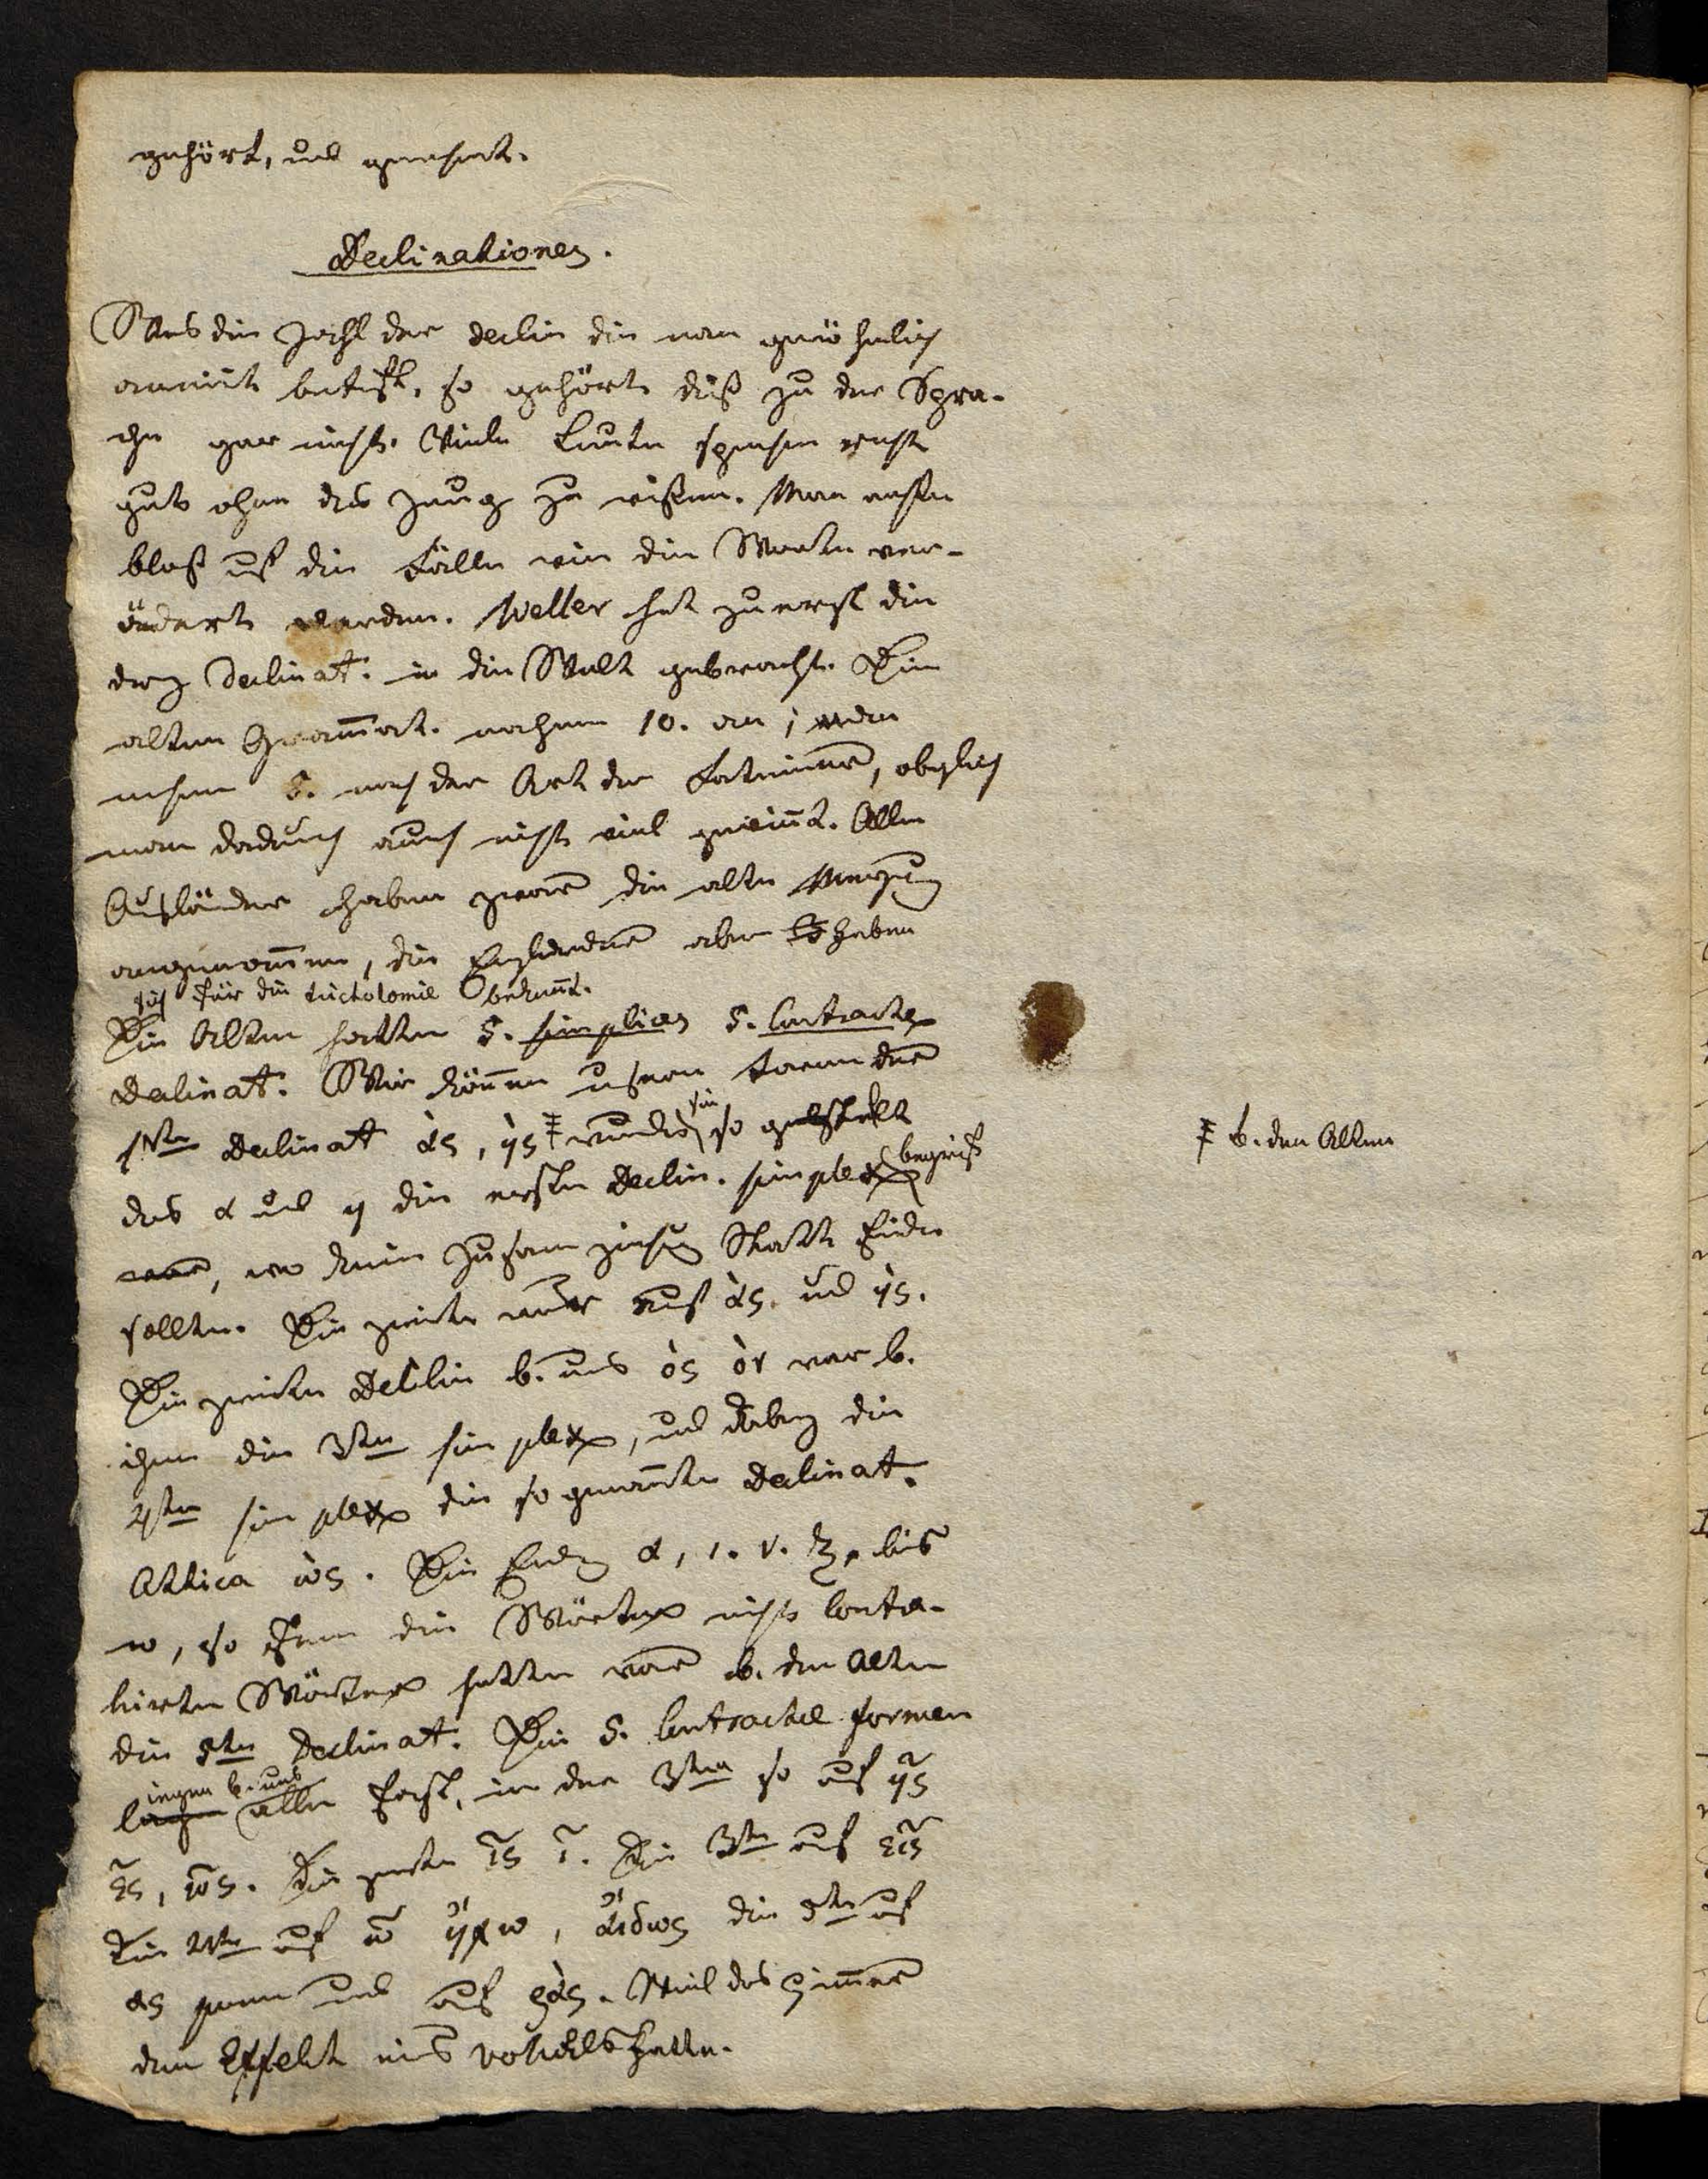 gehört, und gemacht.
Declinationen.
Was die Zahl der Declin die man gewöhnlich
annimt betrift, so gehört diß zu der Spra-
che gar nicht. Viele Leute sprechen recht
gut ohne das Zeug zu wißen. Man achte
bloß auf die Fälle wie die Worte ver-
ändert werden. Weller hat zuerst die
drey Declinat. in die Welt gebracht. Die
alten Grammat. nahmen 10. an;
nehmen 5. nach der Art der Lateiner, obgleich
man dadurch auch nicht viel gewinnt. Alle
Ausländer haben zwar die alte Meinung
angenommen, die Engländer aber haben
sich für die trichotomie bekannt.
Die Alten hatten 5. simplices 5. Contractas
Declinat. Wir können unsern
1sten Declinat ας, ης ǂ so
das α und η die erste Declin. simplex begriff
, wo keine Zusammenziehung Statt finden
sollte. Die zweite auf ας. und ης.
Die zweite Declin b. uns ος ον war b.
ihnen die 3te simplex, und dabey die
4te simplex die so genannte Declinat.
Attica ως. Die Endung α, ι. ν.
ω, so fern die Wörter nicht contra-
hirte Wörter hatten war b. den Alten
die 5te Declinat. Die 5. Contractae formen
liegen b. uns alle fast, in der 3ten so auf ης
ες, ος. Die zweite ις ι. Die 3te auf ευς
Die 4te auf ω ηχω, αιδως die 5te auf
ας und auf ρας. Weil das immer
den Effekt eines vokals hatte.
ǂ b. den Alten